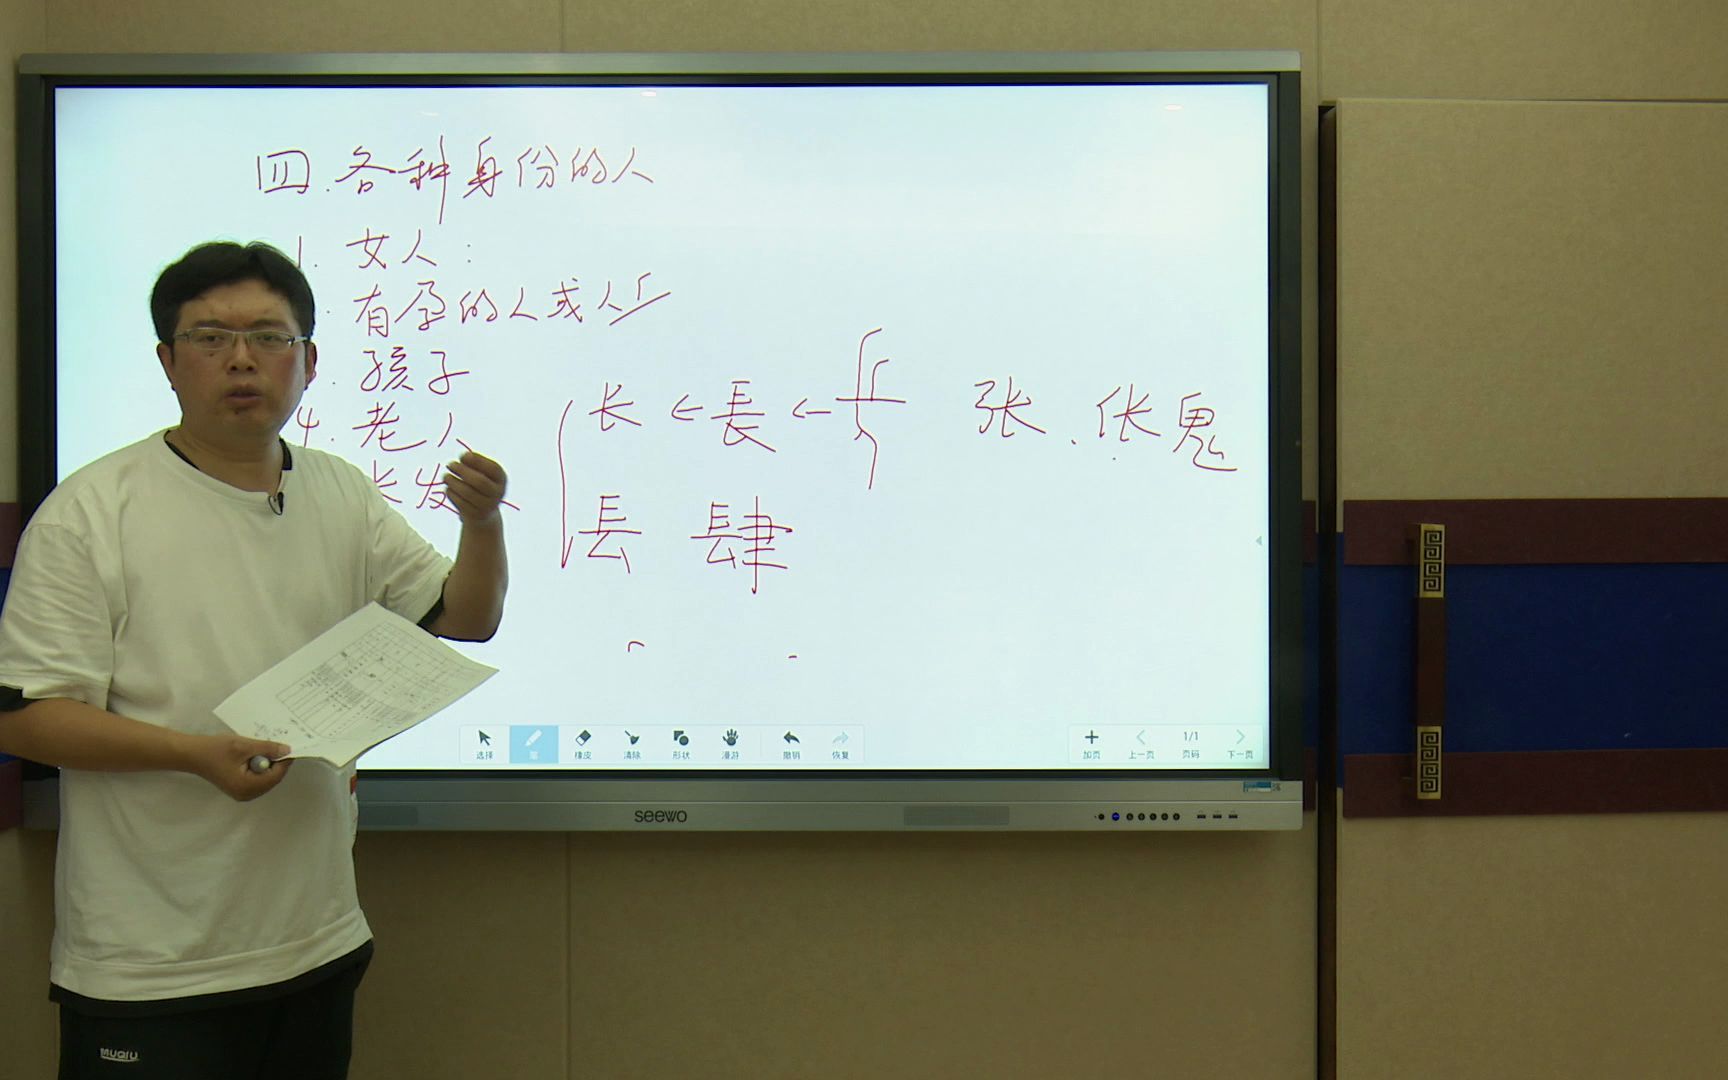 四.各种身份的人
1.女人:
有孕的人或人
孩子
4.老人
长发
长←長← 张、伥鬼
镸 肆
选择 笔 橡皮 清除 形状 漫游 撤销 恢复 加页 上一页 1/1 页码 下一页
seewo
MUQIU